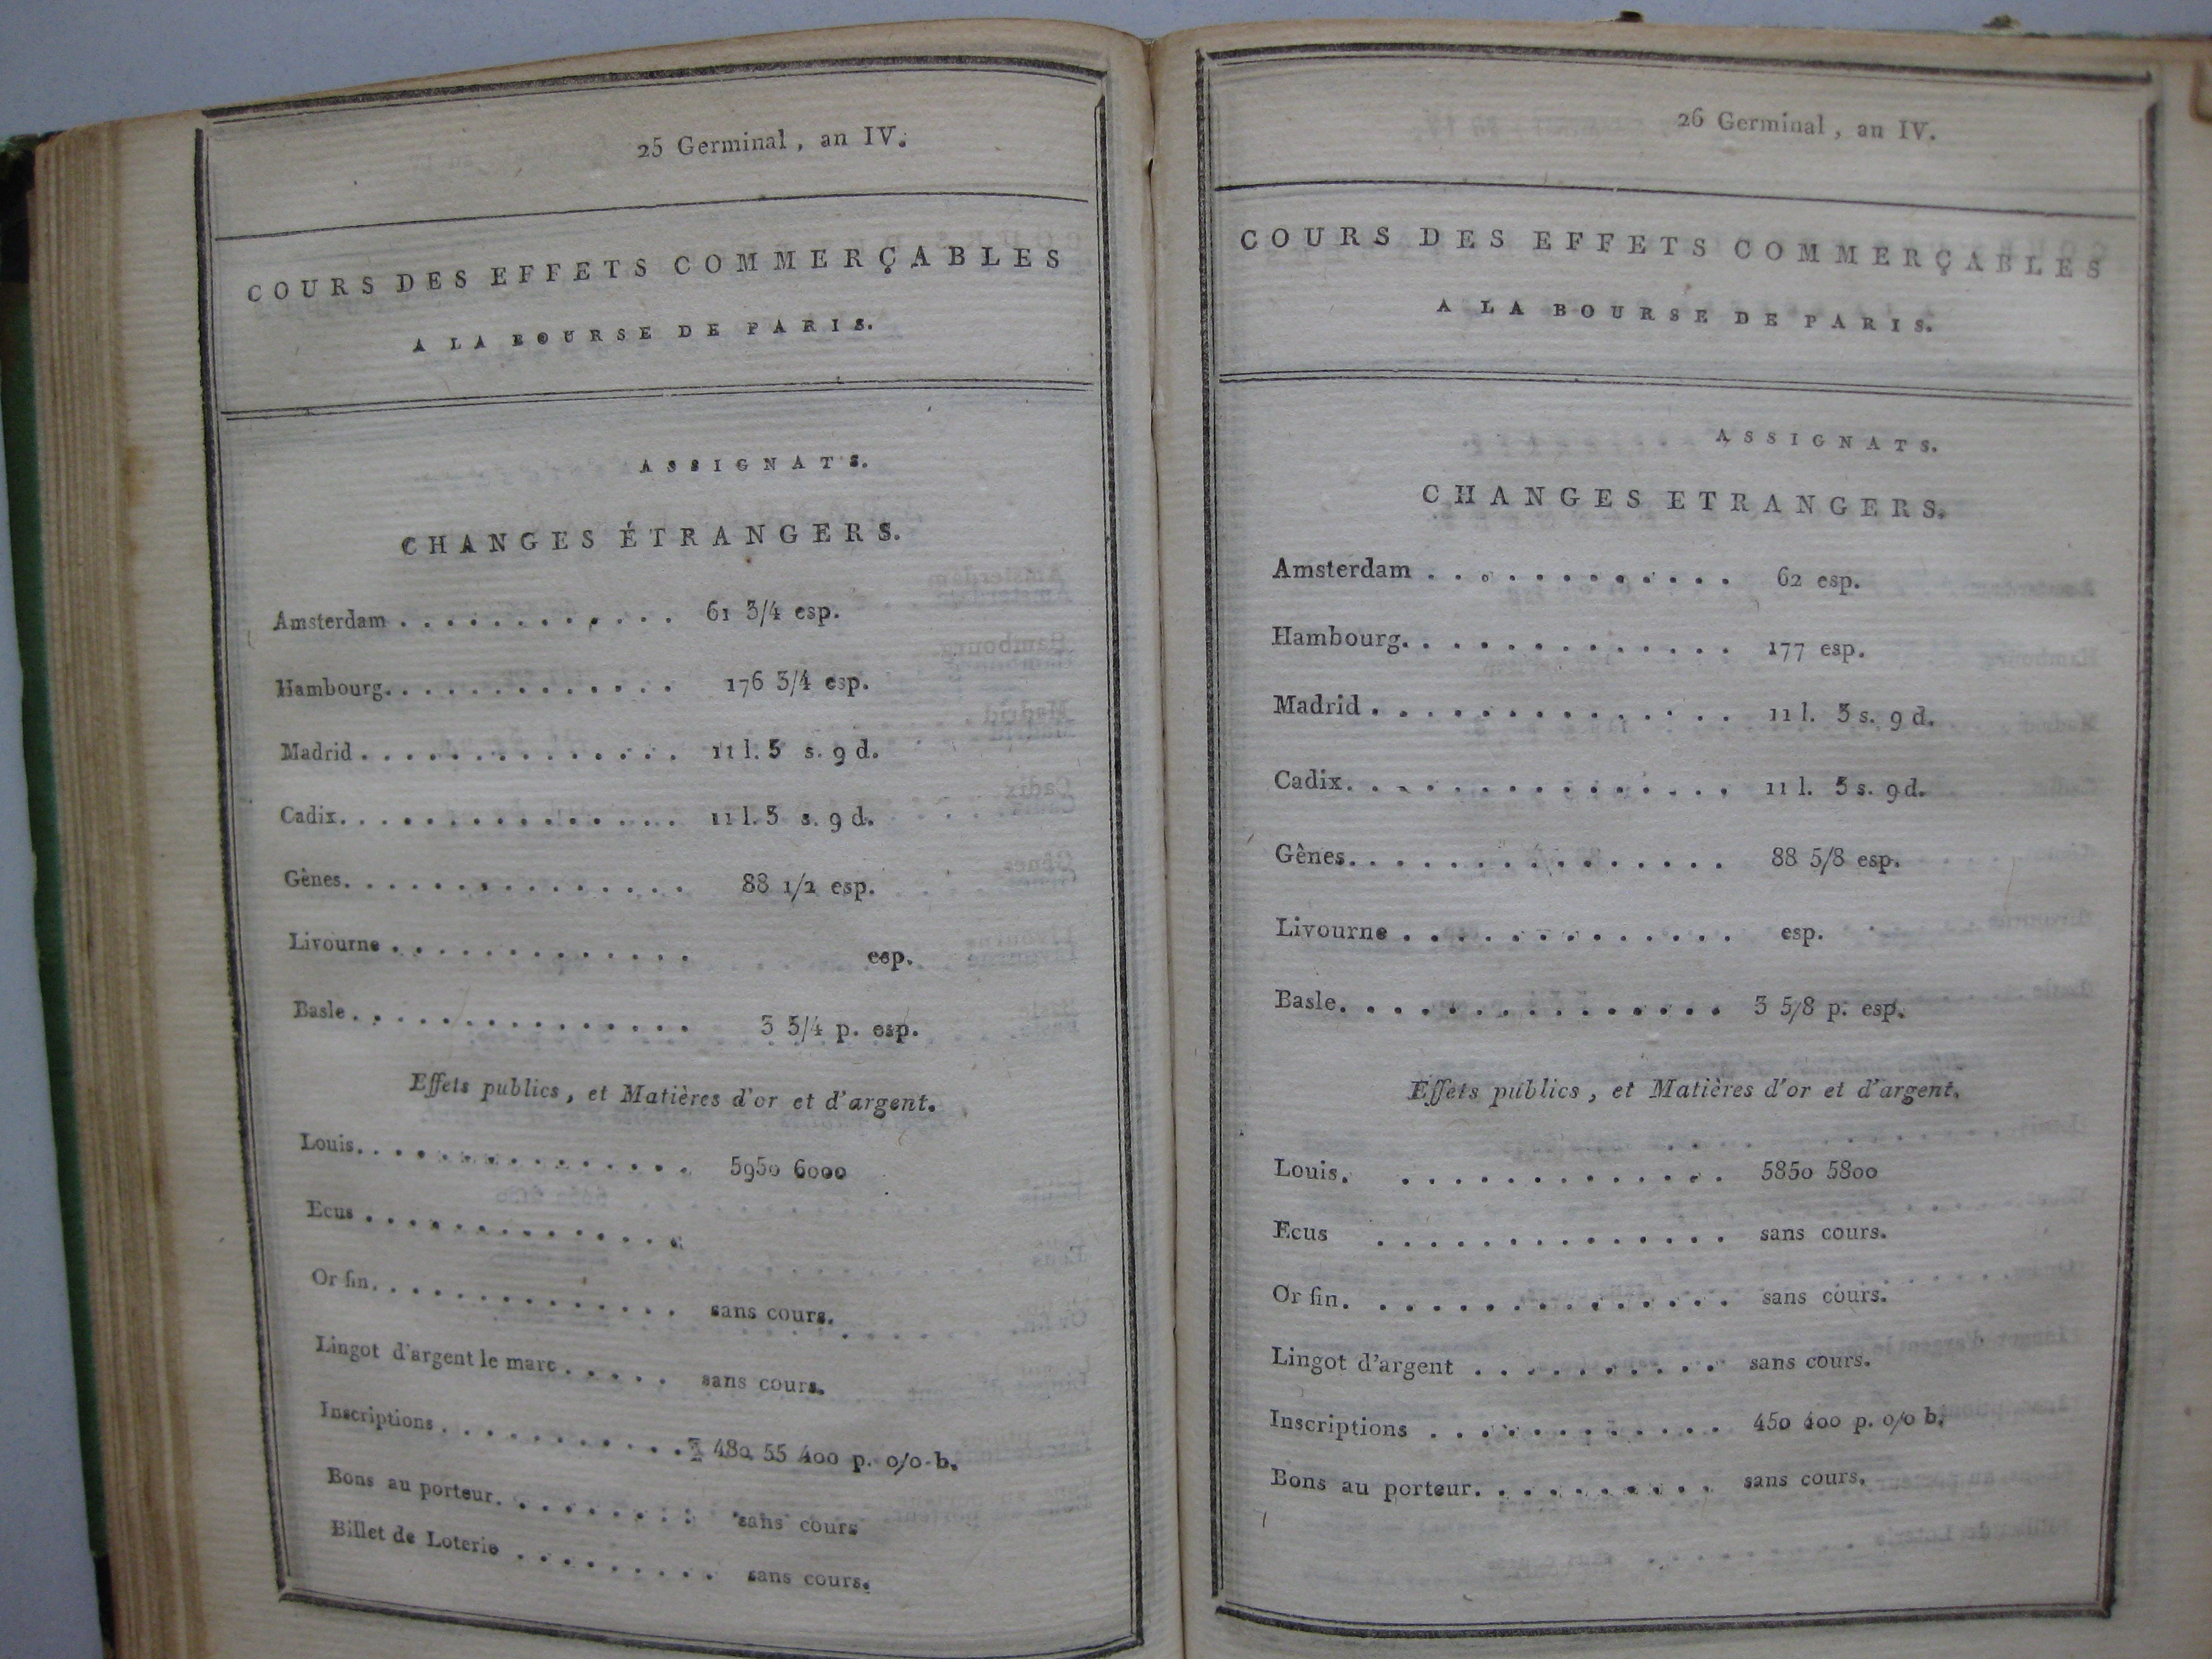 25 Germinal, an IV.
COURS DES EFFETS COMMERÇABLES
A LA BOURSE DE PARIS.
ASSIGNATS.
CHANGES ÉTRANGERS.
Amsterdam . . . . . . . . . . . . 61 3/4 esp.
Hambourg. . . . . . . . . . . . . 176 3/4 esp.
Madrid . . . . . . . . . . . . . . 11 l. 5 s. 9 d.
Cadix. . . . . . . . . . . . . . . 11 l. 5 s. 9 d.
Gênes. . . . . . . . . . . . . . . 88 1/2 esp.
Livourne . . . . . . . . . . . . . esp.
Basle. . . . . . . . . . . . . . . 3 3/4 p. esp.
Effets publics, et Matières d'or et d'argent.
Louis. . . . . . . . . . . . . . . 5950 6000
Ecus . . . . . . . . . . . . . .
Or fin. . . . . . . . . . . . . . sans cours.
Lingot d'argent le marc . . . . . sans cours.
Inscriptions . . . . . . . . . . . 480 55 400 p. o/o b.
Bons au porteur. . . . . . . . . sans cours
Billet de Loterie . . . . . . . . . sans cours.
26 Germinal, an IV.
COURS DES EFFETS COMMERÇABLES
A LA BOURSE DE PARIS.
ASSIGNATS.
CHANGES ETRANGERS.
Amsterdam . . . . . . . . . . . . 62 esp.
Hambourg. . . . . . . . . . . . . 177 esp.
Madrid . . . . . . . . . . . . . . 11 l. 5 s. 9 d.
Cadix. . . . . . . . . . . . . . . 11 l. 5 s. 9 d.
Gênes. . . . . . . . . . . . . . . 88 5/8 esp.
Livourne . . . . . . . . . . . . . esp.
Basle. . . . . . . . . . . . . . . 3 5/8 p. esp.
Effets publics, et Matières d'or et d'argent.
Louis. . . . . . . . . . . . . . 5850 5800
Ecus . . . . . . . . . . . . . . sans cours.
Or fin. . . . . . . . . . . . . . . sans cours.
Lingot d'argent . . . . . . . . . . sans cours.
Inscriptions . . . . . . . . . . . . 450 400 p. o/o b.
Bons au porteur. . . . . . . . . . sans cours.